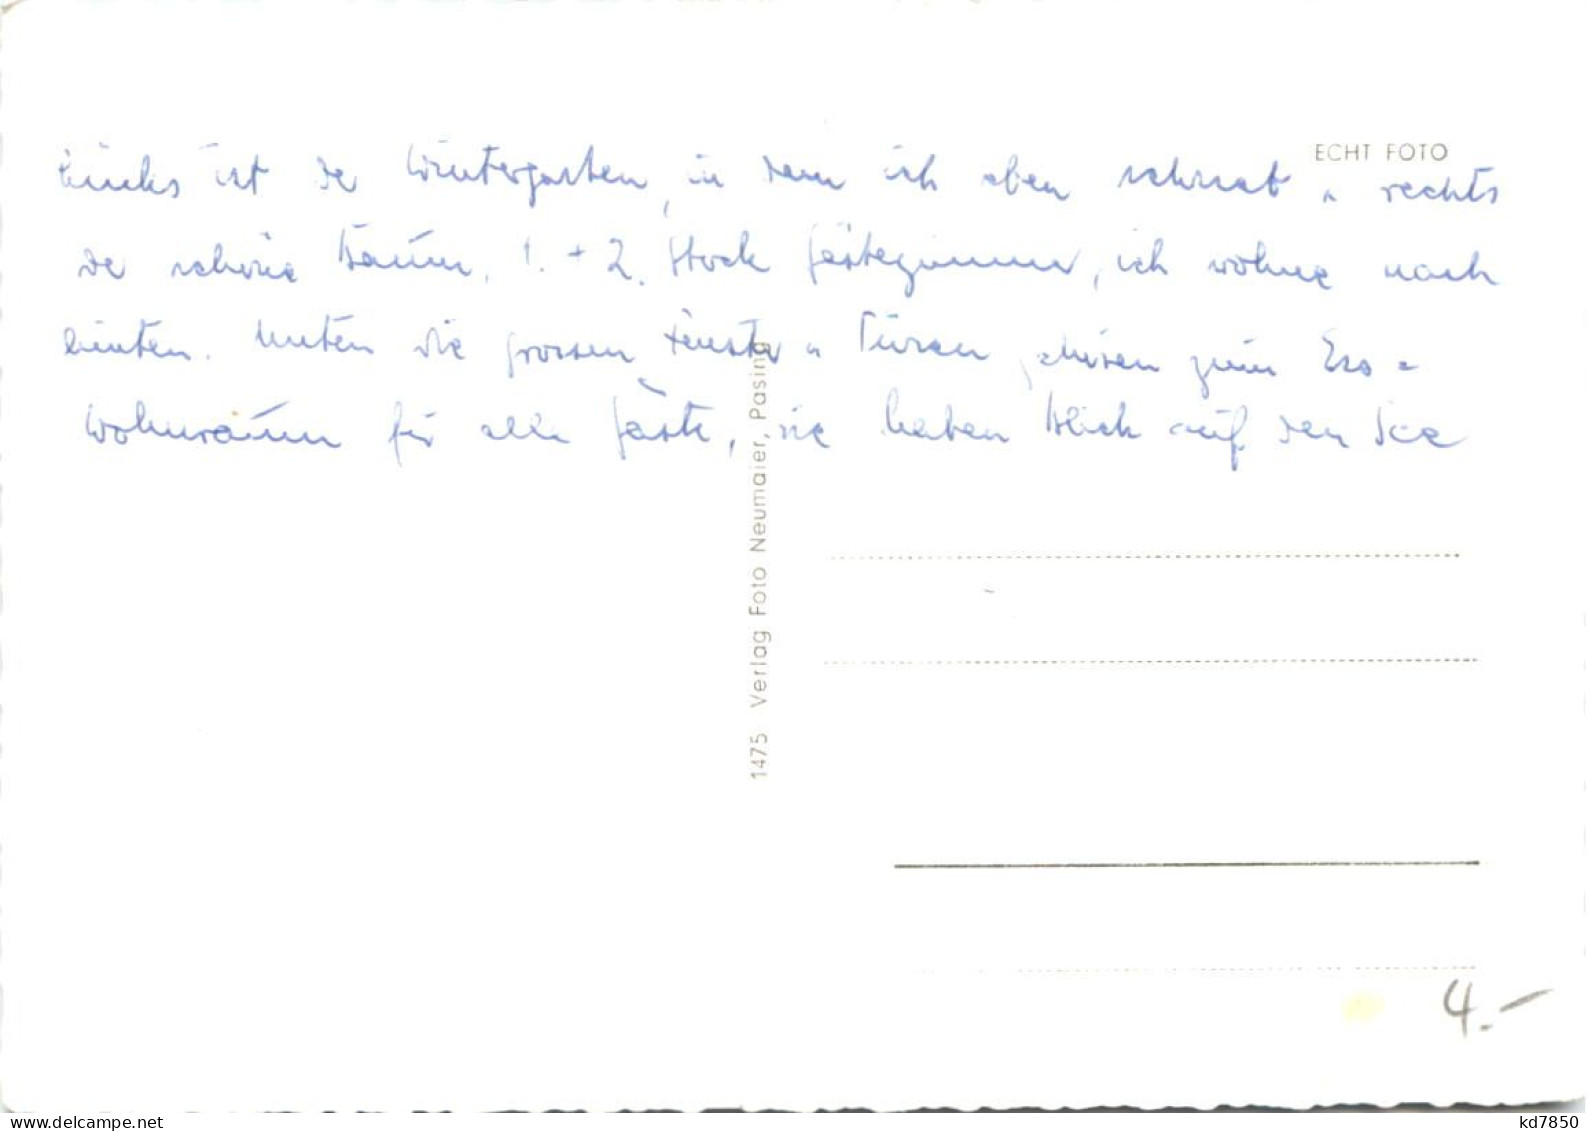 Links ist der Wintergarten, in dem ich eben schrieb u rechts
der schöne Baum. 1. + 2. Stock Gästezimmer, ich wohne nach
hinten. Unten die grossen Fenster u Türen gehören zum Ess =
Wohnraum für alle Gäste, sie haben Blick auf den See
ECHT FOTO
1475 Verlag Foto Neumaier, Pasing
4.-
www.delcampe.net
kd7850